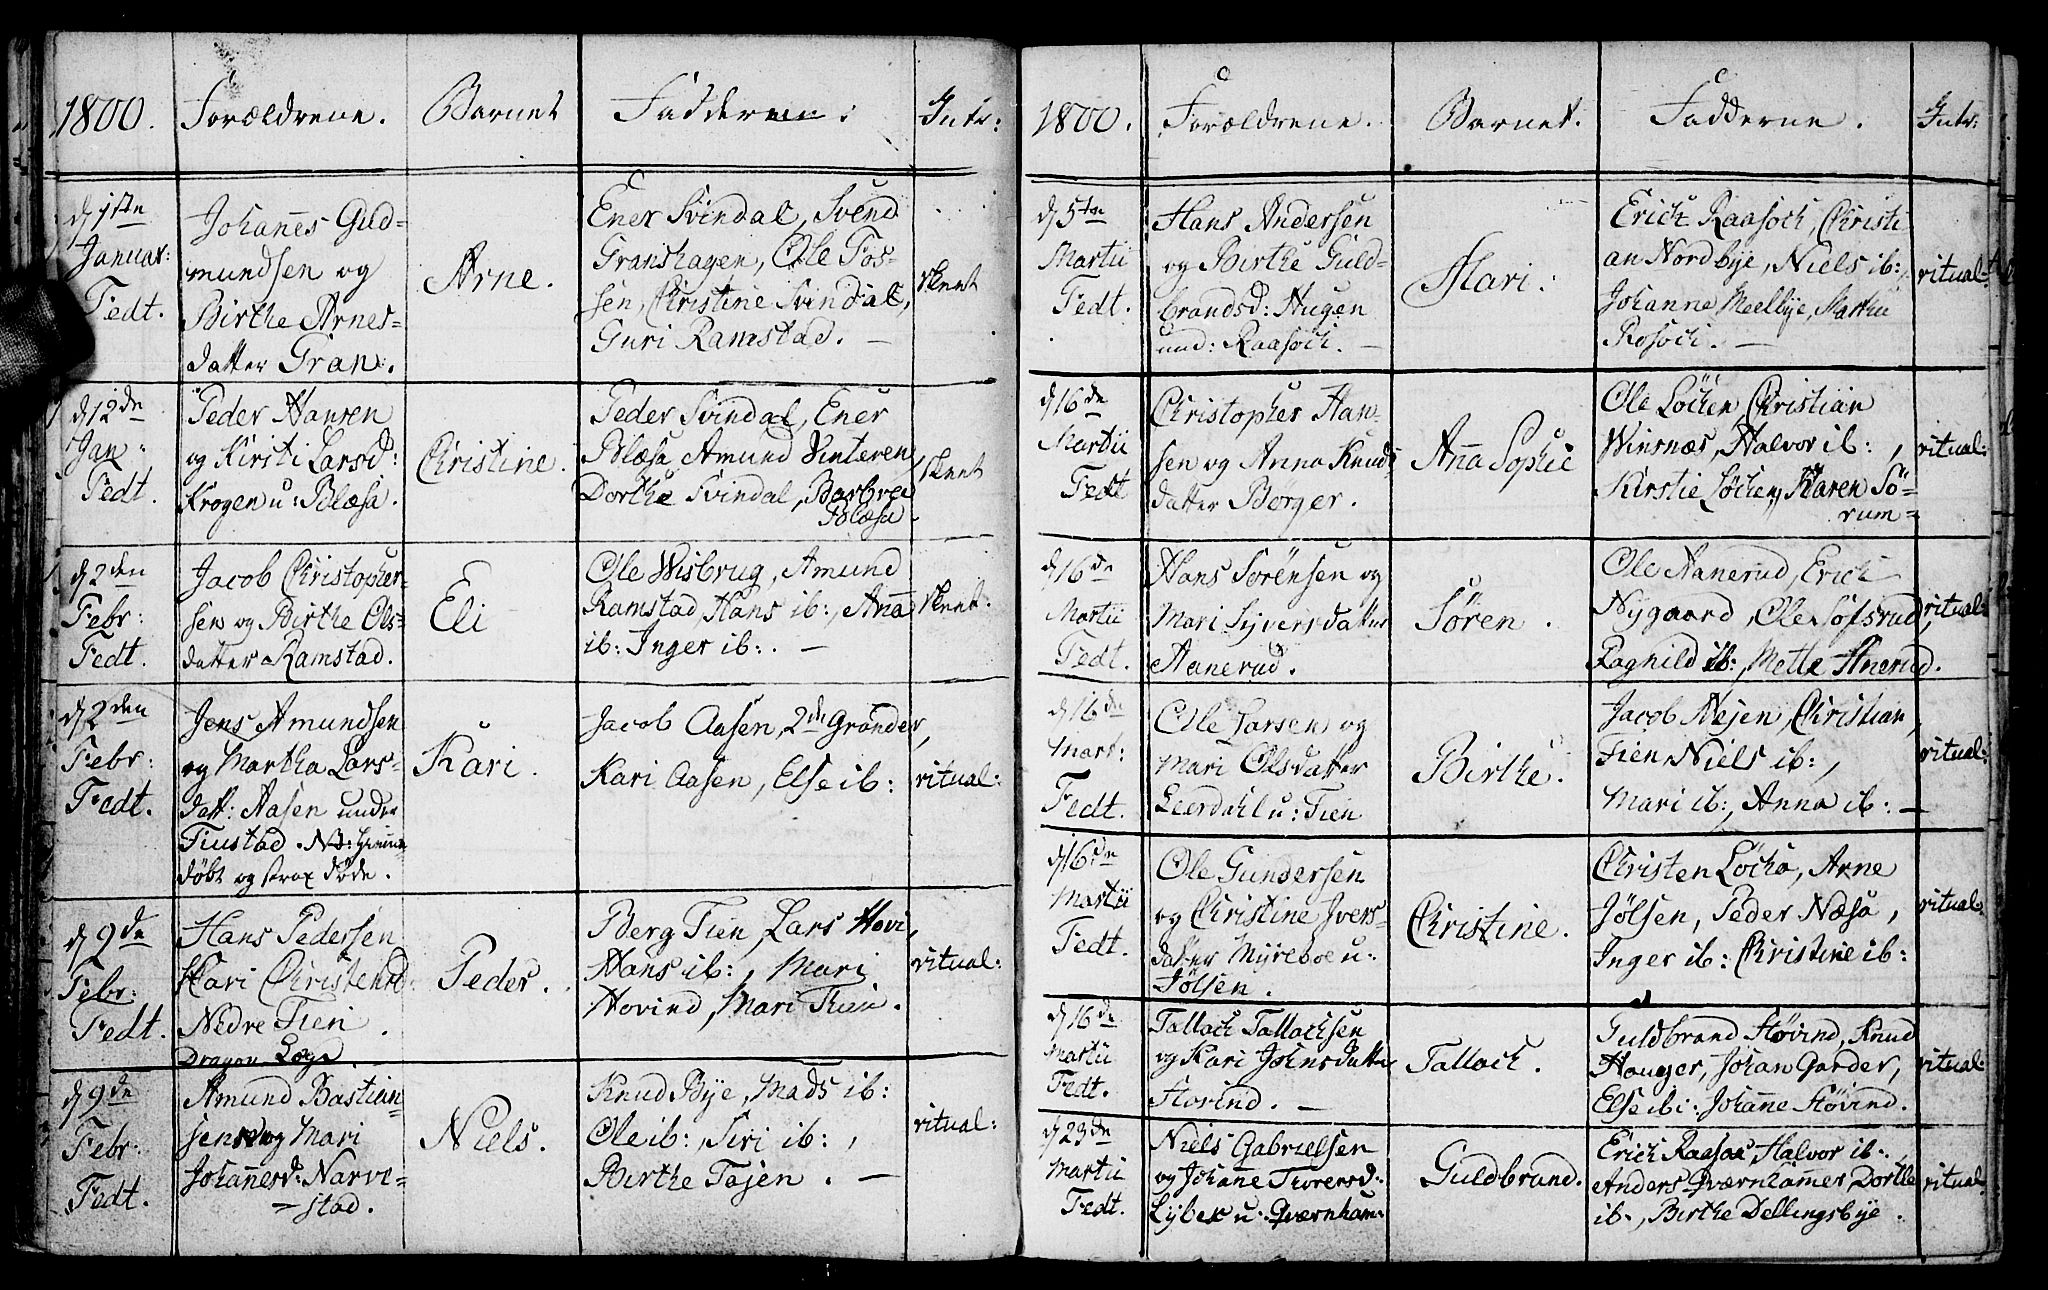 1800.
Forældrene.
Barnet
Fadderne:
Intr:
d 1ste
Januar:
Fedt.
Johañes Gud-
mundsen og
Birthe Arnes-
datter Gran:.
Arne.
Ener Svindal, Svend
Granshagen, Ole Fos-
sen, Christine Svindal,
Guri Ramstad. —
skeet
d 12de
Jan:
Fedt.
Peder Hansen
og Kirsti Larsd:
Krogen u: Blæsa.
Christine.
Peder Svindal, Ener
Blæsa, Amund Vinteren,
Dorthe Svindal, Barbroe
Blæsa.
skeet
d 2den
Febr:
Fedt.
Jacob Christopher-
sen og Birthe Ols-
datter Ramstad.
Eli
Ole Wisbrug, Amund
Ramstad, Hans ib:, Aña
ib: Inger ib:. —
skeet:
d 2den
Febr:
Fedt.
Jens Amundsen
og Martha Lars-
datt: Aasen under
Fiustad. NB: hiemme
döbt og strax döde.
Kari.
Jacob Aasen, 2de Grönder,
Kari Aasen, Else ib:
ritual:
d 9de
Febr:
Fedt.
Hans Pedersen
Kari Christensd:
Nedre Fien.
Dragon Loge
Peder.
Berg Fien, Lars Hovi,
Hans ib:, Mari
Hovind, Mari Fien.
ritual:
d 9de
Febr:
Fedt.
Amund Bastian-
sen og Mari
Johañesd: Narve-
-stad.
Niels.
Knud Bye, Mads ib:
Ole ib:, Siri ib:,
Birthe Tojen. —
ritual:
1800.
Forældrene.
Barnet.
Fadderne.
Intr:
d 5te
Martii
Fedt.
Hans Andersen
og Birthe Guld-
brandsd: Hugen
und: Raasoch. —
Mari.
Erich Raasoch, Christi
an Nordbye, Niels ib:,
Johanne Meelbye, Marthe
Rosoch. —
ritual:
d 16de
Martii
Fedt
Christopher Han-
sen og Anna Knuds
datter Börger.
Aña Sophie
Ole Löchen, Christian
Winsnæs, Halvor ib:,
Kirstie Löchen, Karen Sö-
rum-
ritual:
d 16de
Martii
Fedt.
Hans Sörensen og
Mari Syversdatter
Hanerud.
Sören.
Ole Hanerud, Erich
Nygaard, Ole Sofsrud,
Ragnild ib:, Mette Hnerud.
ritual:
d 16de
Mart:
Fedt.
Ole Larsen og
Mari Olsdatter
Leerdahl u: Fien
Birthe.
Jacob Nejen, Christian,
Fien Niels ib:,
Mari ib:, Anna ib: —
ritual:
d 16de
Martii
Fedt.
Ole Gundersen
og Christine Ivers-
datter Myreboe u:
Jölsen.
Christine.
Christen Löcha, Arne
Jölsen, Peder Næsa,
Inger ib: Christine ib:
ritual:
d 16de
Martii
Fedt.
Tallach Tallachsen
og Kari Johnsdatter
Hovind. —
Tallach.
Guldbrand Hövind, Knud
Hauger, Johan Garder,
Else ib: Johañe Hövind.
ritual:
d 23de
Martii
Fedt.
Niels Gabrielsen
og Johañe Thorensd:
Lybek u: Qværnham:
Guldbrand.
Erich Raasae, Halvor ib:,
Anders Qværnhamer, Dorthe
ib:, Birthe Dellingsbye.
ritual.